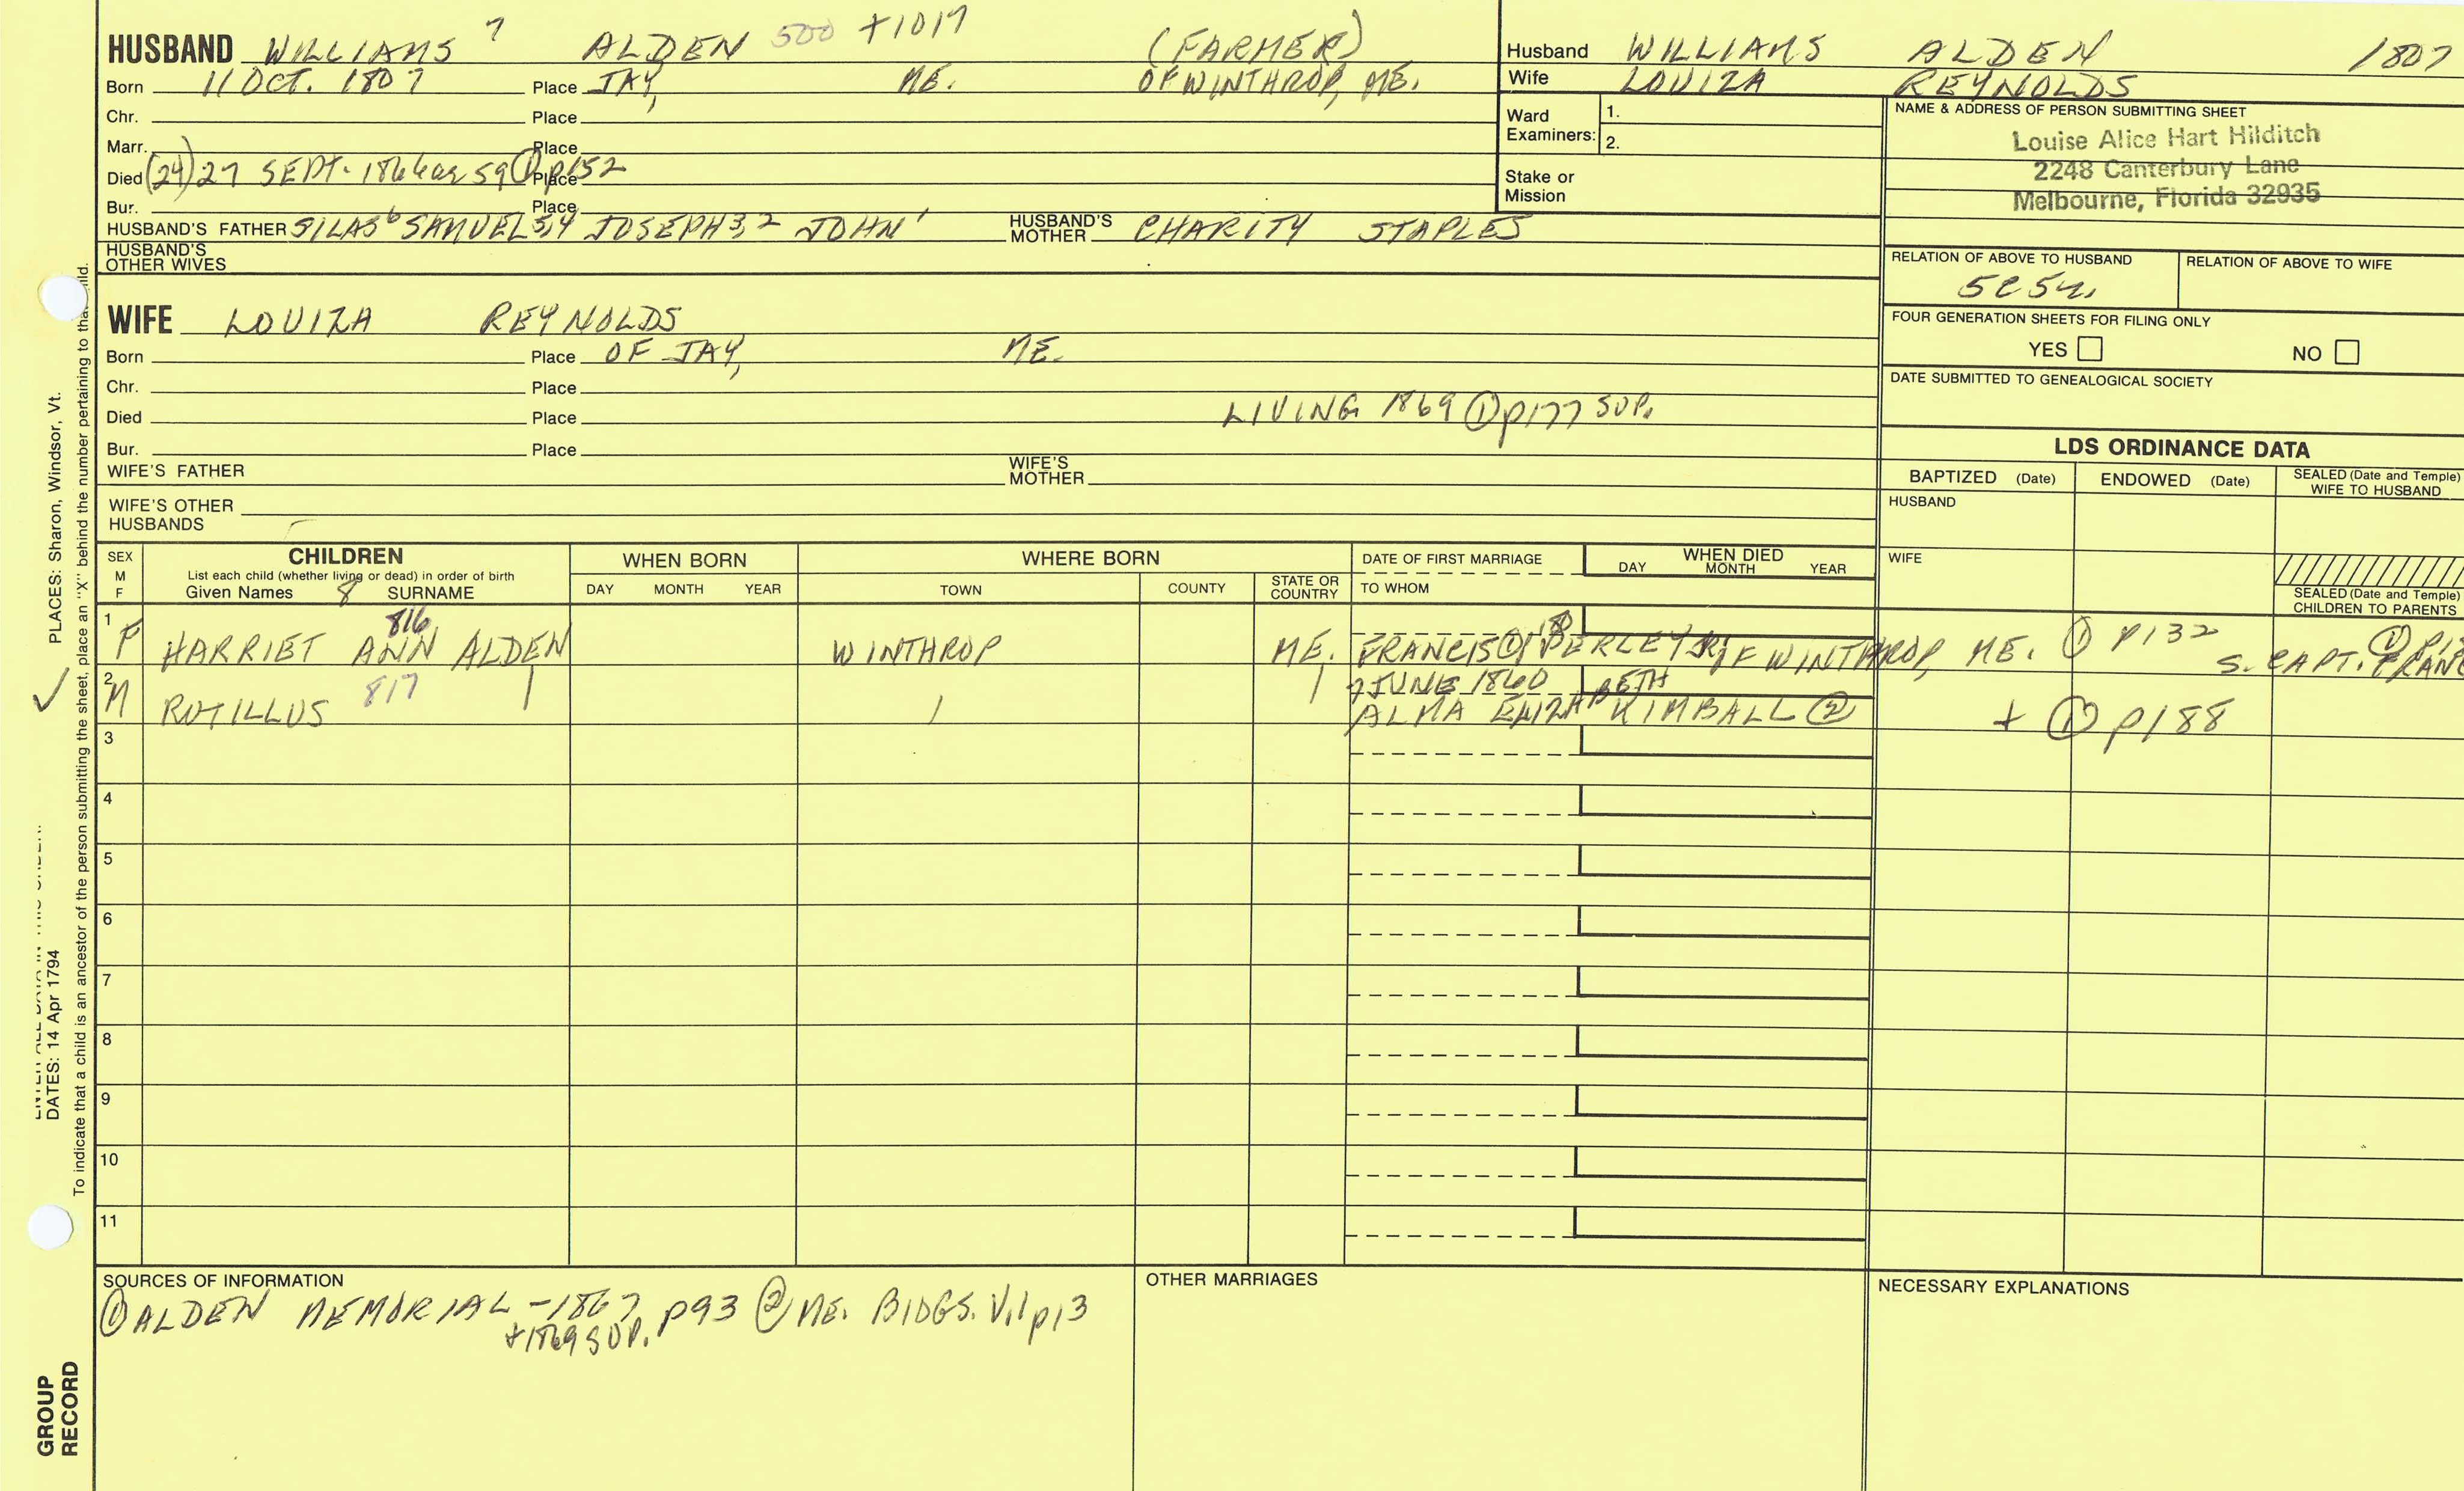 HUSBAND WILLIAMS 7 ALDEN 500 +1017 (FARMER)
Born 11 OCT. 1807 Place JAY, ME. OF WINTHROP, ME.
Chr. Place
Marr. Place
Died (24) 27 SEPT. 1866 ae 59 ① p152 Place
Bur. Place
HUSBAND'S FATHER SILAS6 SAMUEL5,4 JOSEPH3,2 JOHN1 HUSBAND'S MOTHER CHARITY STAPLES
HUSBAND'S OTHER WIVES
WIFE LOUIZA REYNOLDS
Born Place OF JAY, ME.
Chr. Place
Died Place LIVING 1869 ① p177 SUP.
Bur. Place
WIFE'S FATHER WIFE'S MOTHER
WIFE'S OTHER HUSBANDS
Husband WILLIAMS ALDEN 1807
Wife LOUIZA REYNOLDS
Ward Examiners: 1.
2.
Stake or Mission
NAME & ADDRESS OF PERSON SUBMITTING SHEET
Louise Alice Hart Hilditch
2248 Canterbury Lane
Melbourne, Florida 32935
RELATION OF ABOVE TO HUSBAND RELATION OF ABOVE TO WIFE
FOUR GENERATION SHEETS FOR FILING ONLY
YES NO
DATE SUBMITTED TO GENEALOGICAL SOCIETY
LDS ORDINANCE DATA
BAPTIZED (Date) ENDOWED (Date) SEALED (Date and Temple) WIFE TO HUSBAND
HUSBAND
WIFE
SEALED (Date and Temple) CHILDREN TO PARENTS
SEX M F
CHILDREN
List each child (whether living or dead) in order of birth
Given Names 8 SURNAME
WHEN BORN
DAY MONTH YEAR
WHERE BORN
TOWN COUNTY STATE OR COUNTRY
DATE OF FIRST MARRIAGE
TO WHOM
WHEN DIED
DAY MONTH YEAR
1 F HARRIET ANN ALDEN 816 WINTHROP ME. FRANCIS ① PERLEY JR. OF WINTHROP, ME. ① p132 S. CAPT.
2 M RUTILLUS 817 7 JUNE 1860
ALMA ELIZABETH KIMBALL ② + ① p188
3
4
5
6
7
8
9
10
11
SOURCES OF INFORMATION
① ALDEN MEMORIAL -1867 p93 ② ME. BIOGS. V.1 p13
+1869 SUP.
OTHER MARRIAGES
NECESSARY EXPLANATIONS
PLACES: Sharon, Windsor, Vt.
DATES: 14 Apr 1794
To indicate that a child is an ancestor of the person submitting the sheet, place an "X" behind the number pertaining to that child.
GROUP
RECORD